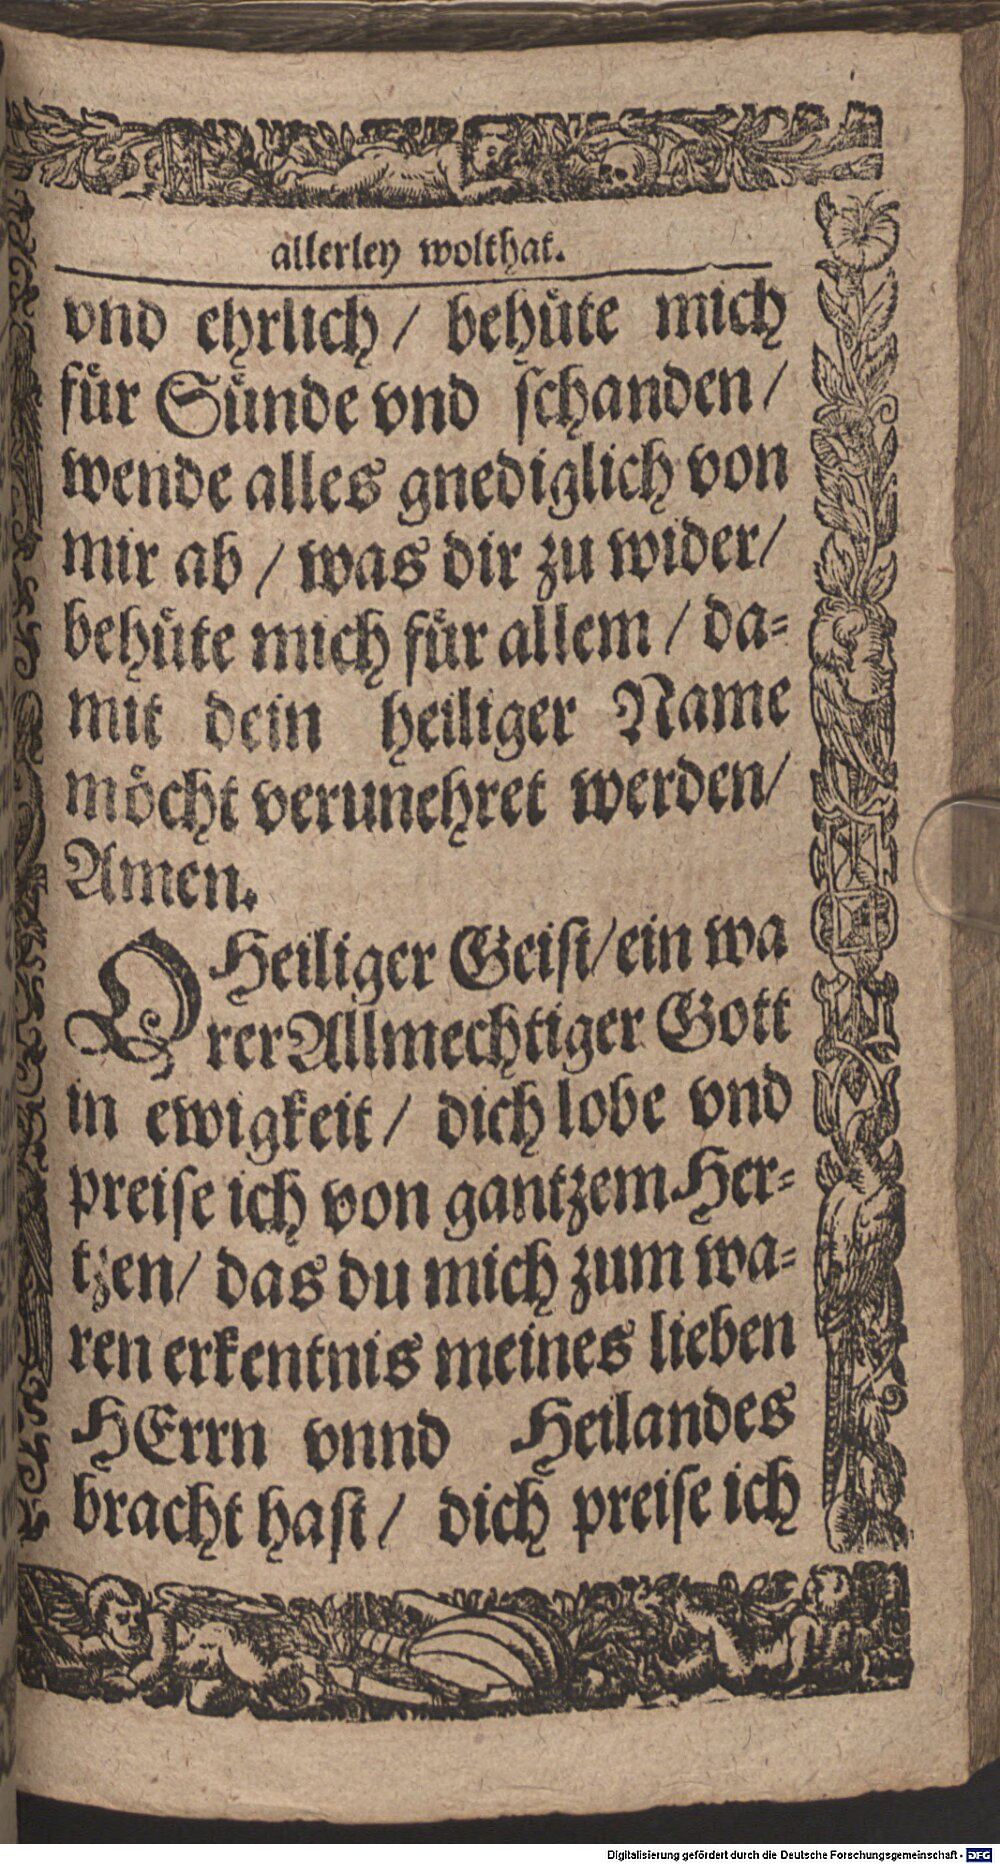 allerley wolthat.
vnd ehrlich / behüte mich
für Sünde vnd schanden /
wende alles gnediglich von
mir ab / was dir zu wider /
behüte mich für allem / da=
mit dein heiliger Name
möcht verunehret werden /
Amen.
O Heiliger Geist / ein wa
rer Allmechtiger Gott
in ewigkeit / dich lobe vnd
preise ich von gantzem Her=
tzen / das du mich zum wa=
ren erkentnis meines lieben
HErrn vnnd Heilandes
bracht hast / dich preise ich
Digitalisierung gefördert durch die Deutsche Forschungsgemeinschaft - DFG